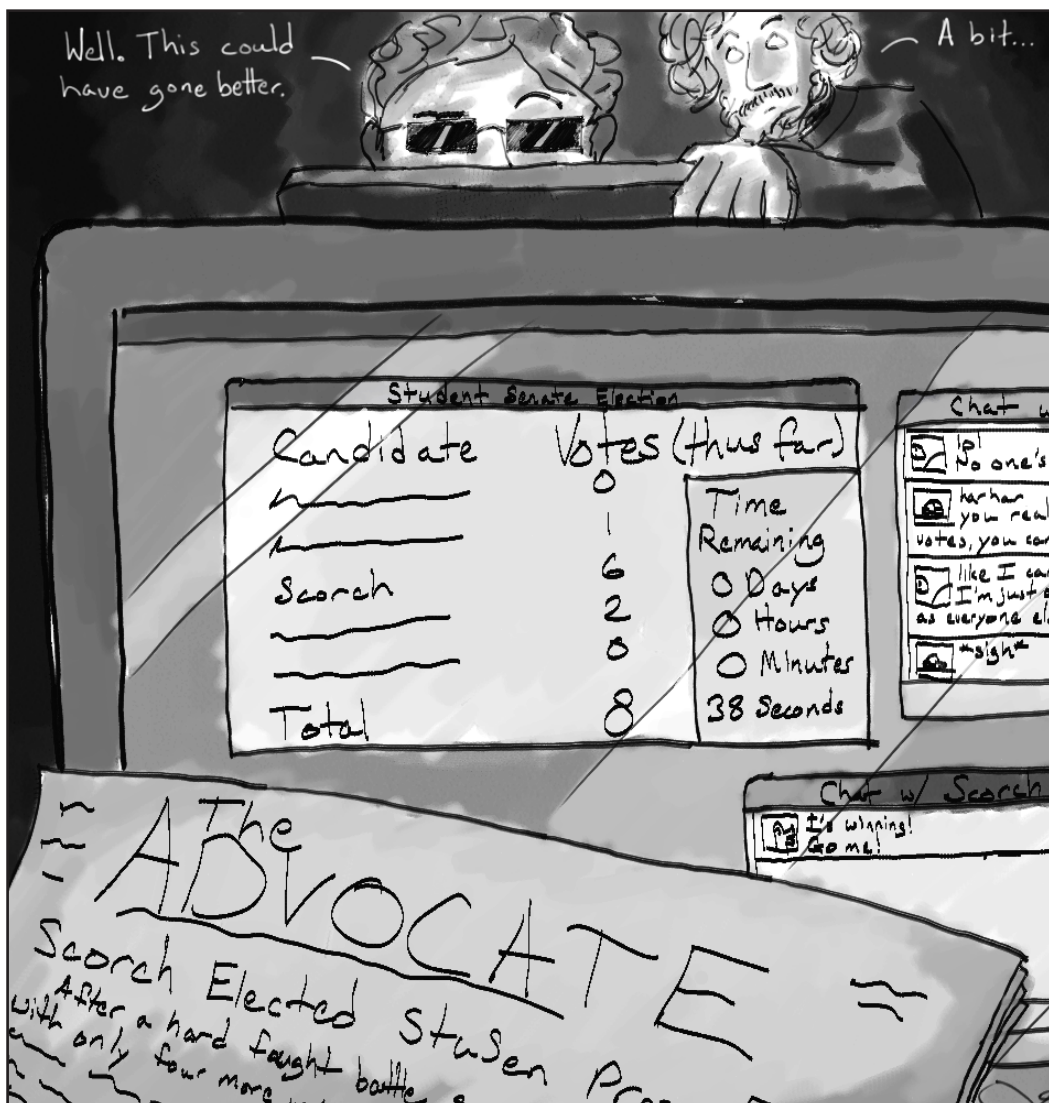 Well. This could
have gone better.
A bit...
Student Senate Election
Candidate Votes (thus far)
0
1
Scorch 6
2
0
Total 8
Time
Remaining
0 Days
0 Hours
0 Minutes
38 Seconds
Chat w
lol
No one's
harhar
you real
votes, you can
like I car
I'm just
as everyone el
*sigh*
Chat w/ Scorch
I'm winning!
Go me!
The
ADVOCATE
Scorch Elected StuSen Pre
After a hard fought battle
with only four more